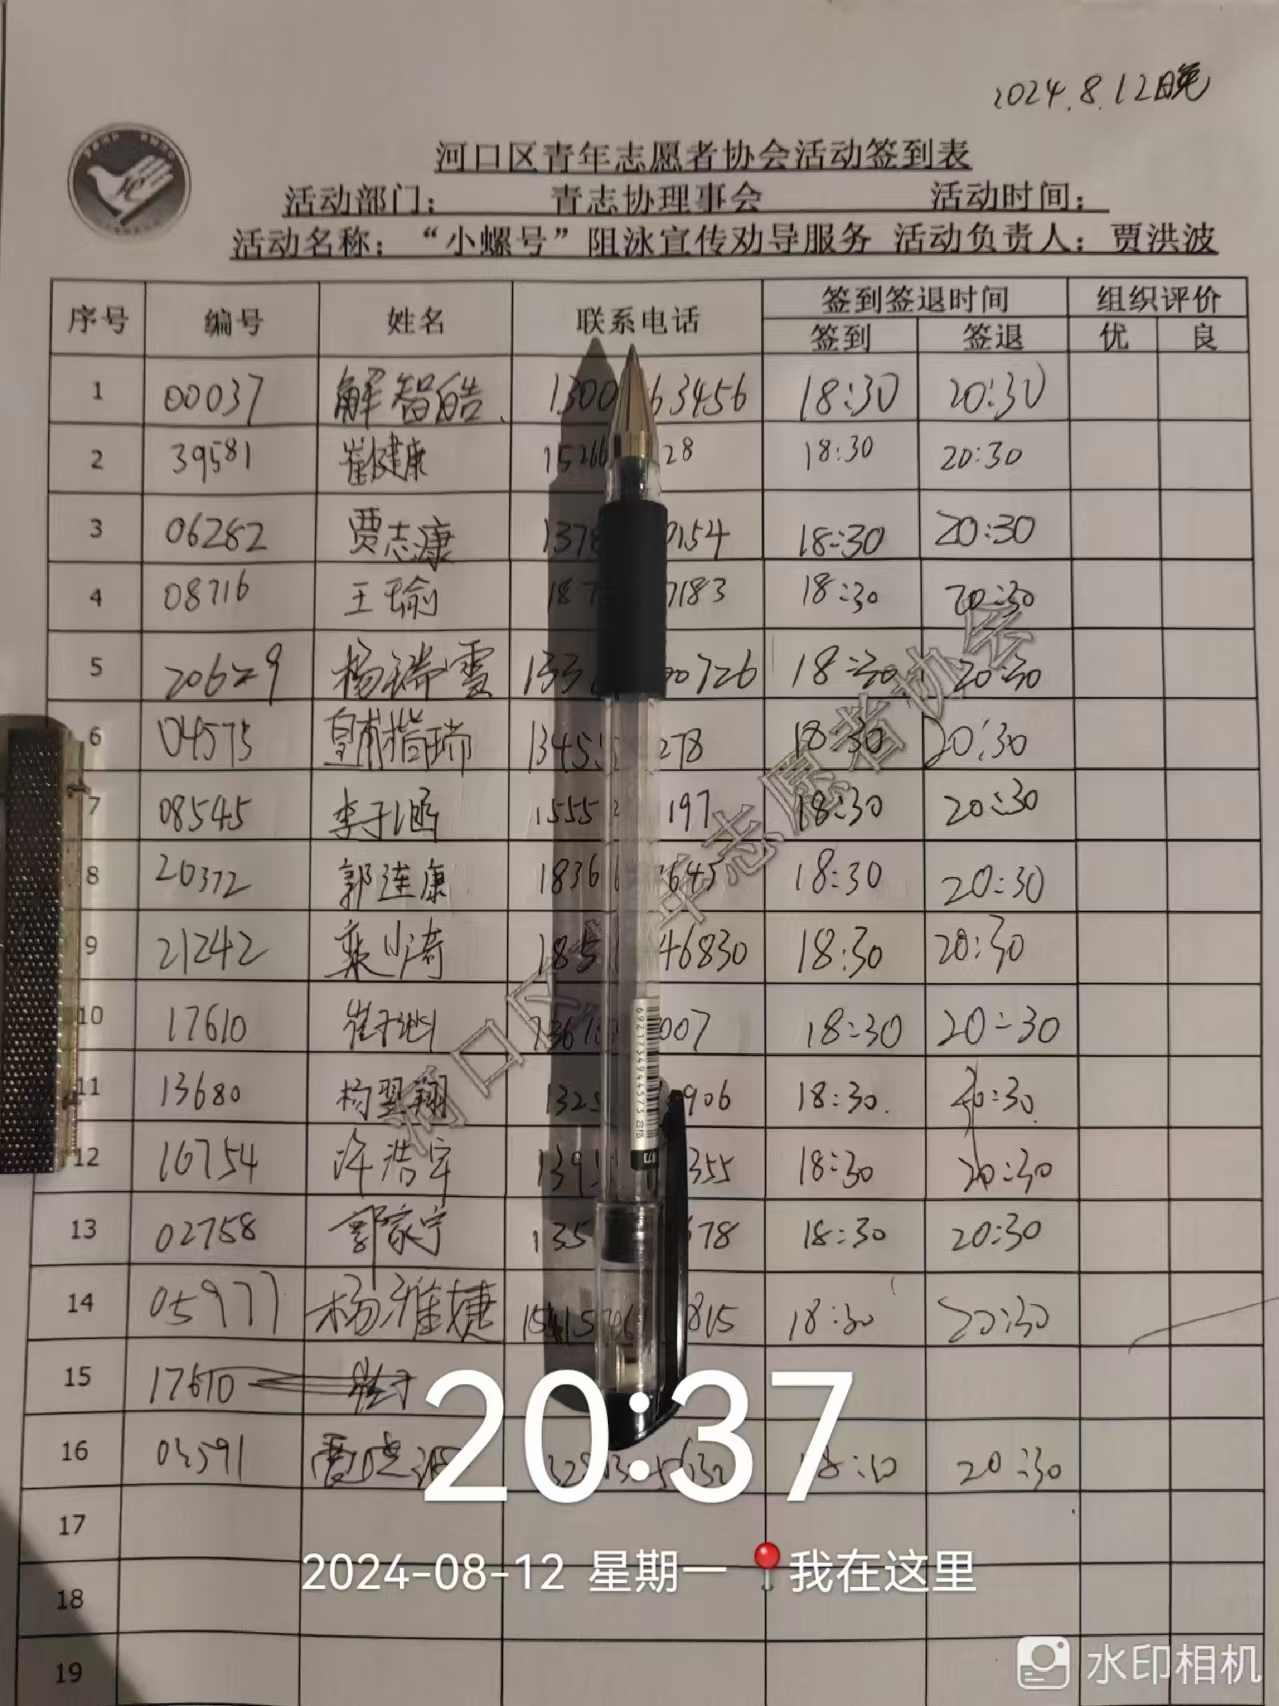 2024.8.12晚
河口区青年志愿者协会活动签到表
活动部门: 青志协理事会 活动时间:
活动名称:“小螺号”阻泳宣传劝导服务 活动负责人:贾洪波
序号 编号 姓名 联系电话 签到签退时间 组织评价
签到 签退 优 良
1 00037 解智皓 1300 63456 18:30 20:30
2 39581 崔健康 15266 28 18:30 20:30
3 06282 贾志康 1378 0154 18:30 20:30
4 08716 王瑜 187 7183 18:30 20:30
5 20629 杨瑞雪 133 00726 18:30 20:30
6 04575 皇甫指瑞 1345 278 18:30 20:30
7 08545 李于涵 1555 197 18:30 20:30
8 20372 郭连康 1836 18:30 20:30
9 21242 栾 185 46830 18:30 20:30
10 17610 崔 007 18:30 20:30
11 13680 杨翌翔 132 906 18:30 20:30
12 16754 许浩宇 139 355 18:30 20:30
13 02758 郭家宁 135 678 18:30 20:30
14 05977 杨雅婕 815 18:30 20:30
15 17610
16 03591 20:30
17
18
19
河口区 年志愿者协会
6921734944573
20:37
2024-08-12 星期一 我在这里
水印相机